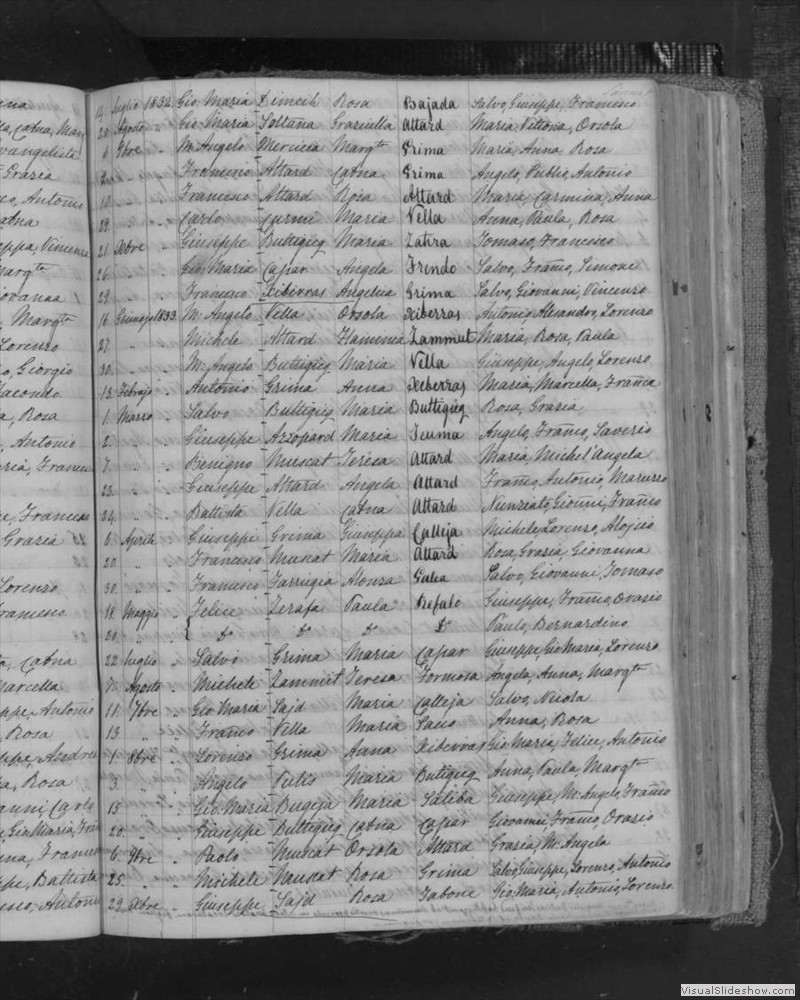 ena
la, Catna, Mar
vangelista
Grazia
co, Antonio
atna
eppa, Vincenz
Margta
iovanna
, Margta
Lorenzo
o, Giorgio
iacondo
a, Rosa
, Antonio
aria, Frances
e, Frances
Grazia
Lorenzo
Francesco
a, Catna
Marcella
ppe, Antonio
, Rosa
ppe, Andrea
a, Rosa
anni, Carlo
, Gio Maria, Fran
ena, France
ppe, Battista
esco, Antoni
14 Luglio 1832 Gio: Maria Dimech Rosa Bajada Salvo, Giuseppe, Francesco
20 Agosto " Gio Maria Soltana Graziulla Attard Maria, Vittoria, Orsola
6 7bre " M. Angelo Mercieca Margta Grima Maria, Anna, Rosa
" " Francesco Attard Catna Grima Angelo, Publio, Antonio
10 " " Francesco Attard Rosa Attard Maria, Carmina, Anna
22 " " Carlo Curmi Maria Vella Anna, Paula, Rosa
21 Xbre " Giuseppe Buttigieg Maria Zahra Tomaso, Francesco
26 " " Gio. Maria Capar Angela Frendo Salvo, Franco, Simone
29 " " Francesco Xiberras Angelica Grima Salvo, Giovanni, Vincenzo
16 Gennajo 1833 M. Angelo Vella Orsola Xiberras Antonio, Alesandro, Lorenzo
27 " " Michele Attard Flaminia Zammut Maria, Rosa, Paula
30 " " M. Angelo Buttigieg Maria Vella Giuseppe, Angelo, Lorenzo
13 Febrajo " Antonio Grima Anna Xiberras Maria, Marcella, Franca
1 Marzo " Salvo Buttigieg Maria Buttigieg Rosa, Grazia
2 " " Giuseppe Azzopard Maria Teuma Angelo, Franco, Saverio
7 " " Benigno Muscat Teresa Attard Maria, Michel'Angela
23 " " Giuseppe Attard Angela Attard Franco, Antonio,
24 " " Battista Vella Catna Attard Nunzeato, Gionni, Franco
6 Aprile " Giuseppe Grima Giuseppa Calleja Michele, Lorenzo,
20 " " Francesco Muscat Maria Attard Rosa, Grazia, Giovanna
30 " " Francesco Farrugia Alonza Galea Salvo, Giovanni, Tomaso
18 Maggio " Felice Zerafa Paula Refalo Giuseppe, Franco, Orazio
21 " " { Do Do Do Do Paulo, Bernardino
22 Luglio " Salvo Grima Maria Capar Giuseppe, Gio Maria, Lorenzo
Agosto " Michele Zammit Teresa Formosa Angela, Anna, Margta
11 7bre " Gio Maria Sajd Maria Calleja Salvo, Nicola
13 " " Franco Vella Maria Anna, Rosa
1 8bre " Lorenzo Grima Anna Xiberras Gio. Maria, Felice, Antonio
3 " " Angelo Maria Butigieg Anna, Paula, Margta
15 " " Gio. Maria Bugeja Maria Saliba Giuseppe, M. Angelo, Franco
20 " " Giuseppe Buttigieg Catna Capar Giovanni, Franco, Orazio
6 9bre " Paolo Muscat Orsola Attard Grazia, M. Angela
25 " " Michele Muscat Rosa Grima Salvo, Giuseppe, Lorenzo, Antonio
29 Xbre " Giuseppe Sajd Rosa Tabone Gio Maria, Antonio, Lorenzo
VisualSlideshow.com